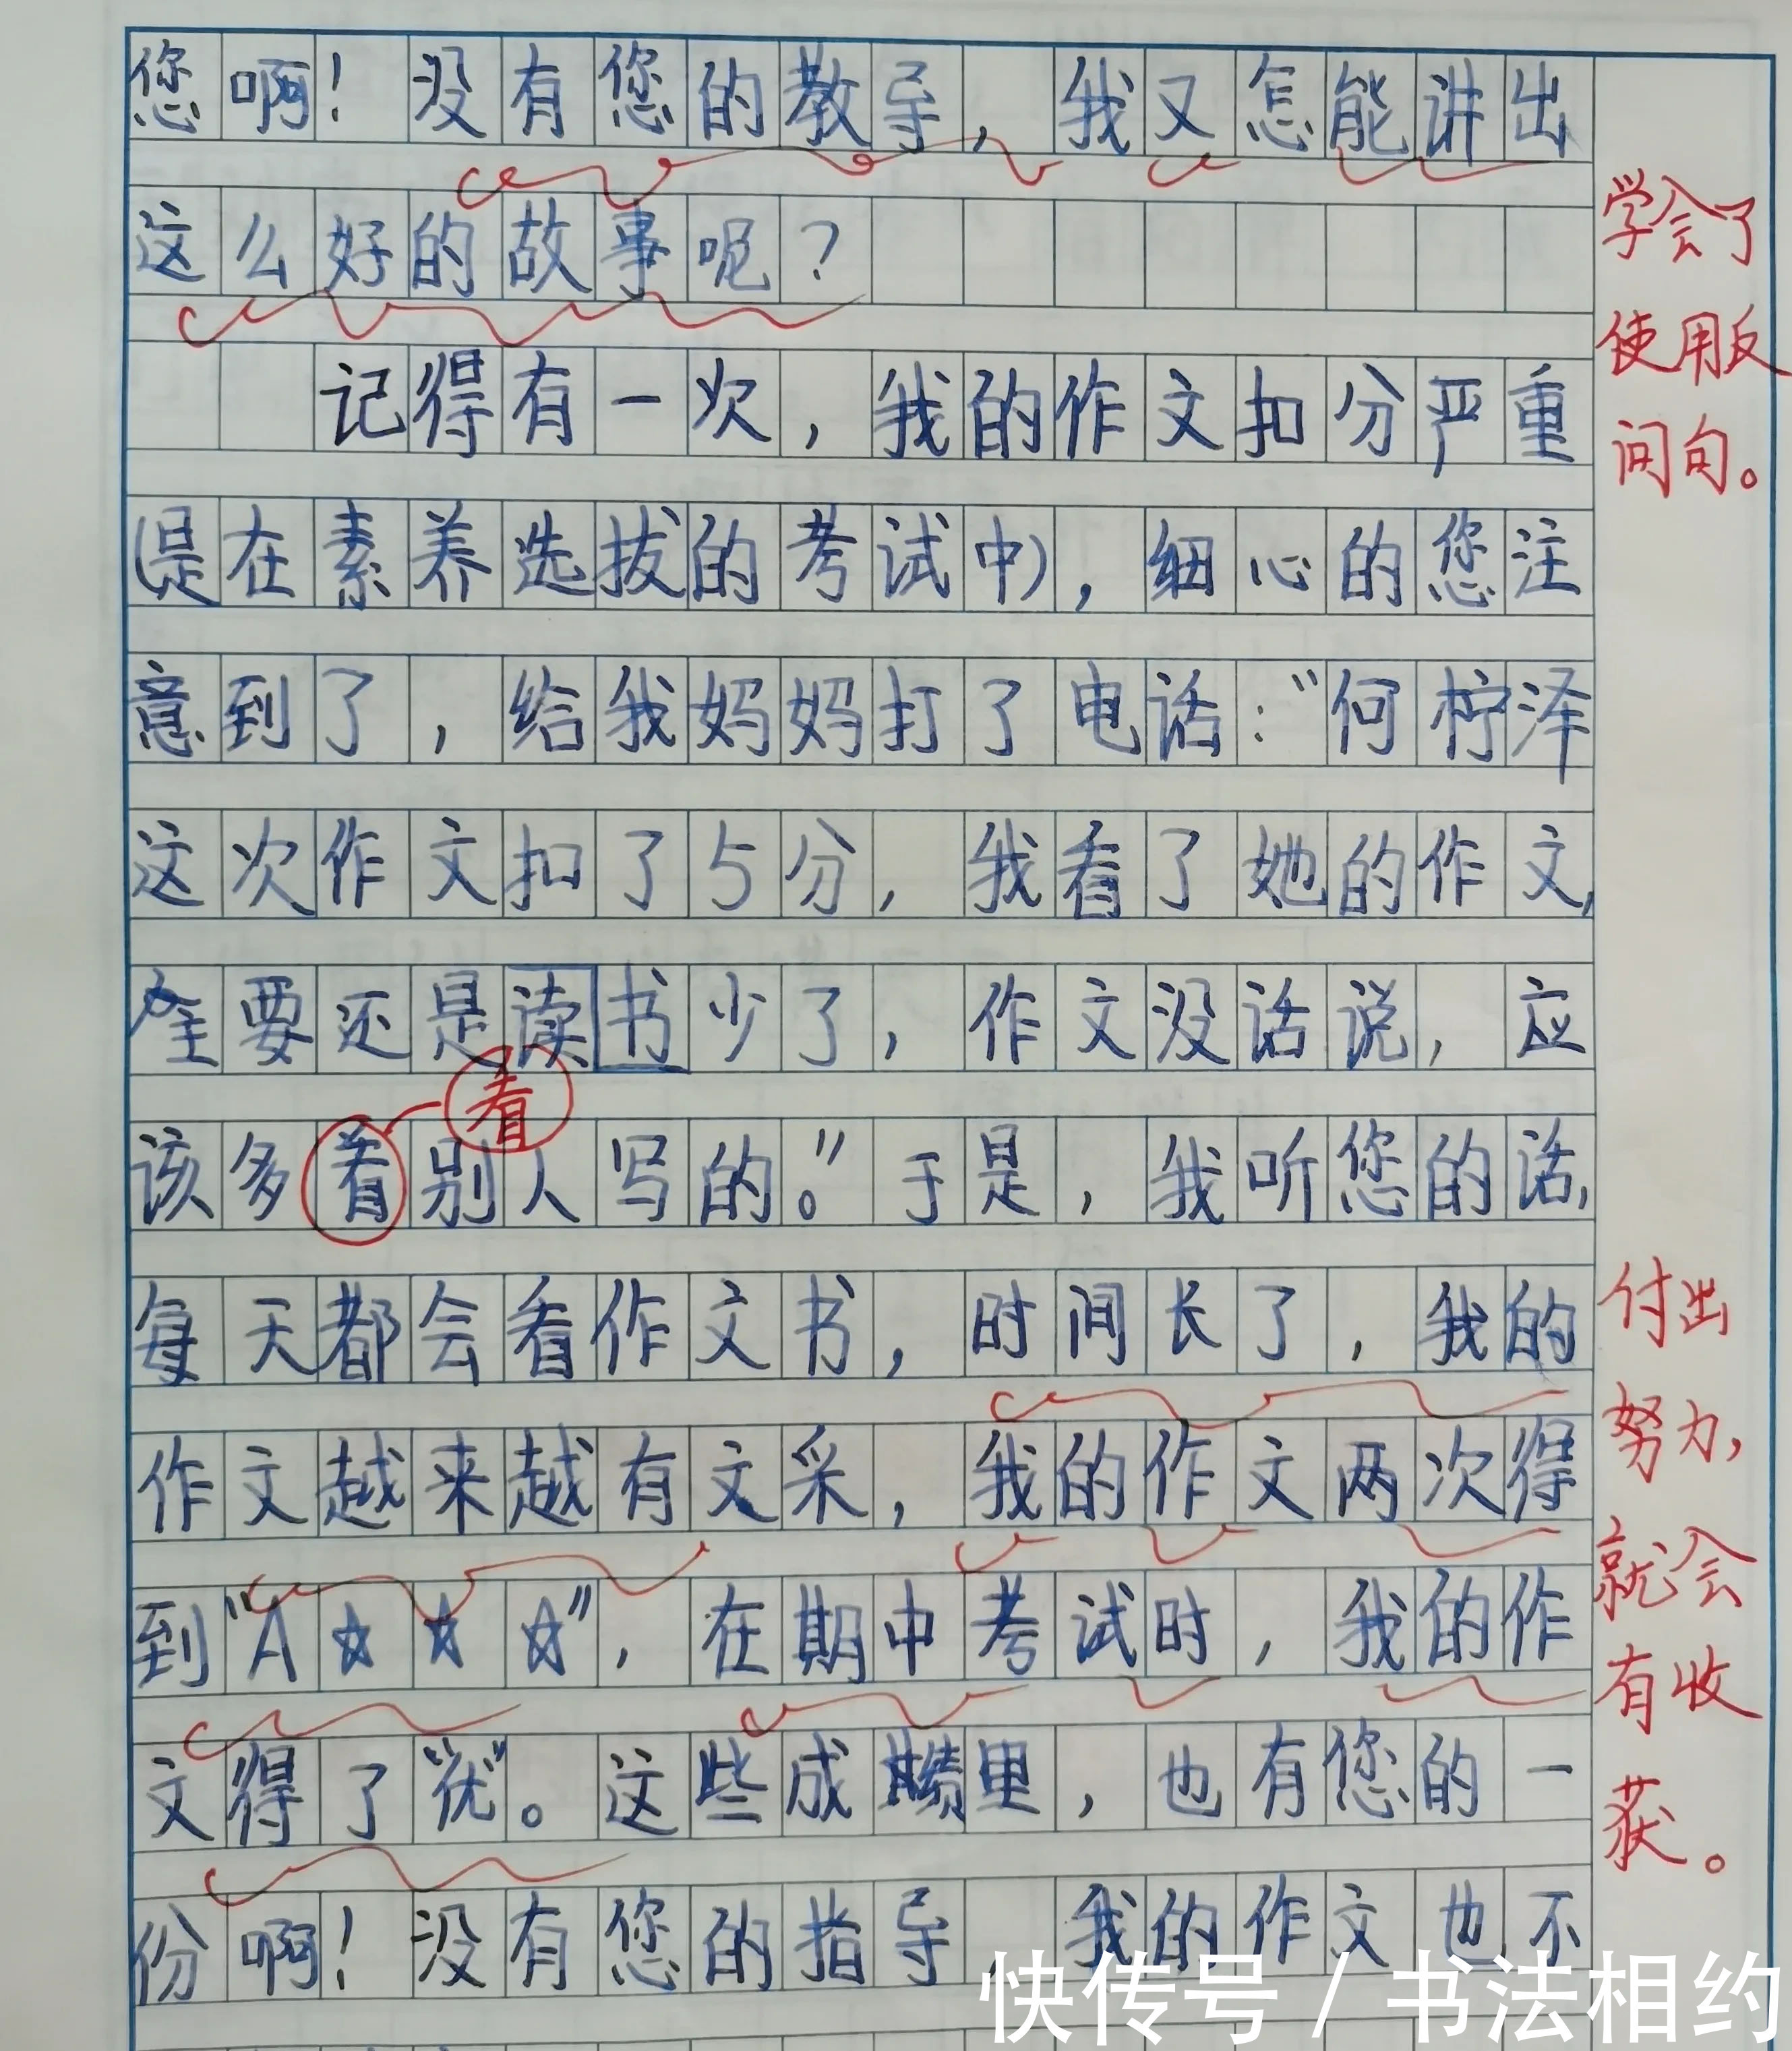 您啊！没有您的教导，我又怎能讲出
这么好的故事呢？
记得有一次，我的作文扣分严重
(是在素养选拔的考试中)，细心的您注
意到了，给我妈妈打了电话：“何柠泽
这次作文扣了5分，我看了她的作文，
主要还是读书少了，作文没话说，应
看
该多看别人写的。”于是，我听您的话，
每天都会看作文书，时间长了，我的
作文越来越有文采，我的作文两次得
到“A☆☆☆”，在期中考试时，我的作
文得了“优”。这些成绩里，也有您的一
份啊！没有您的指导，我的作文也不
学会了
使用反
问句。
付出
努力，
就会
有收
获。
快传号/书法相约